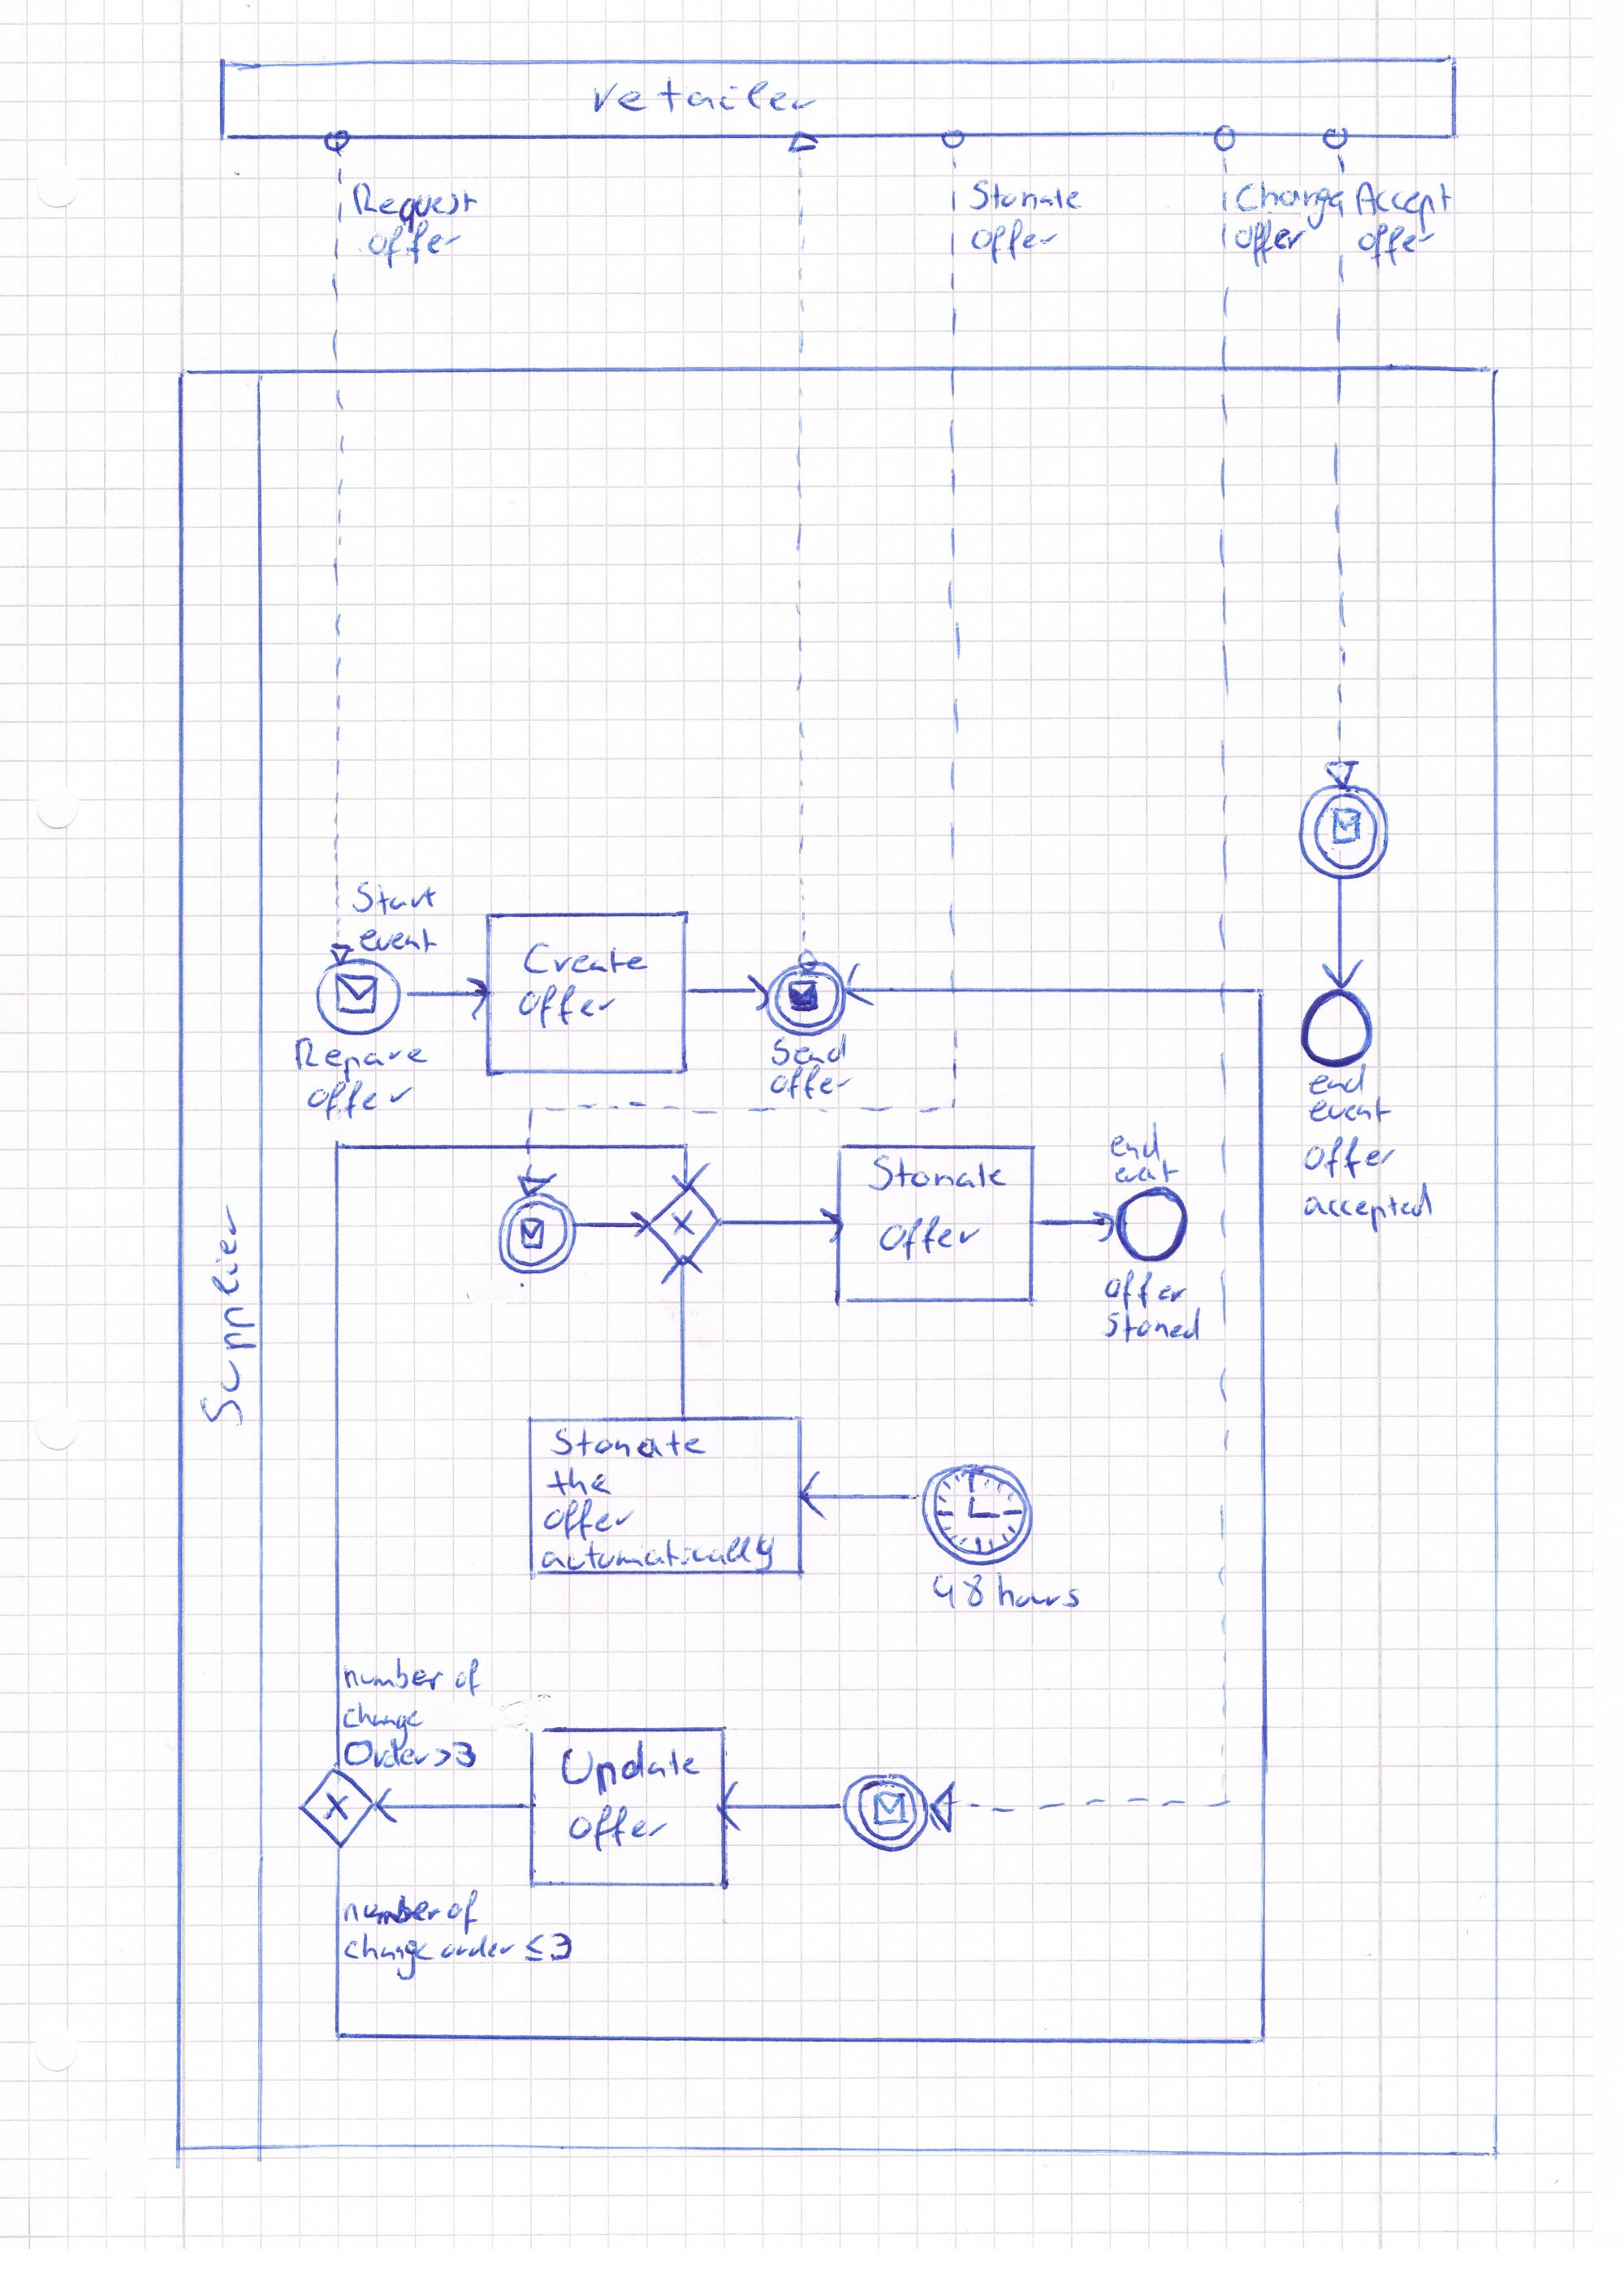 retailer
Request
offer
Stonate
offer
Change
offer
Accept
offer
Start
event
Repare
offer
Create
offer
Send
offer
end
event
offer
accepted
Supplier
Stonate
offer
end
event
offer
Stoned
Stonate
the
offer
automatically
48 hours
number of
change
Order >3
Update
offer
number of
change order ≤3